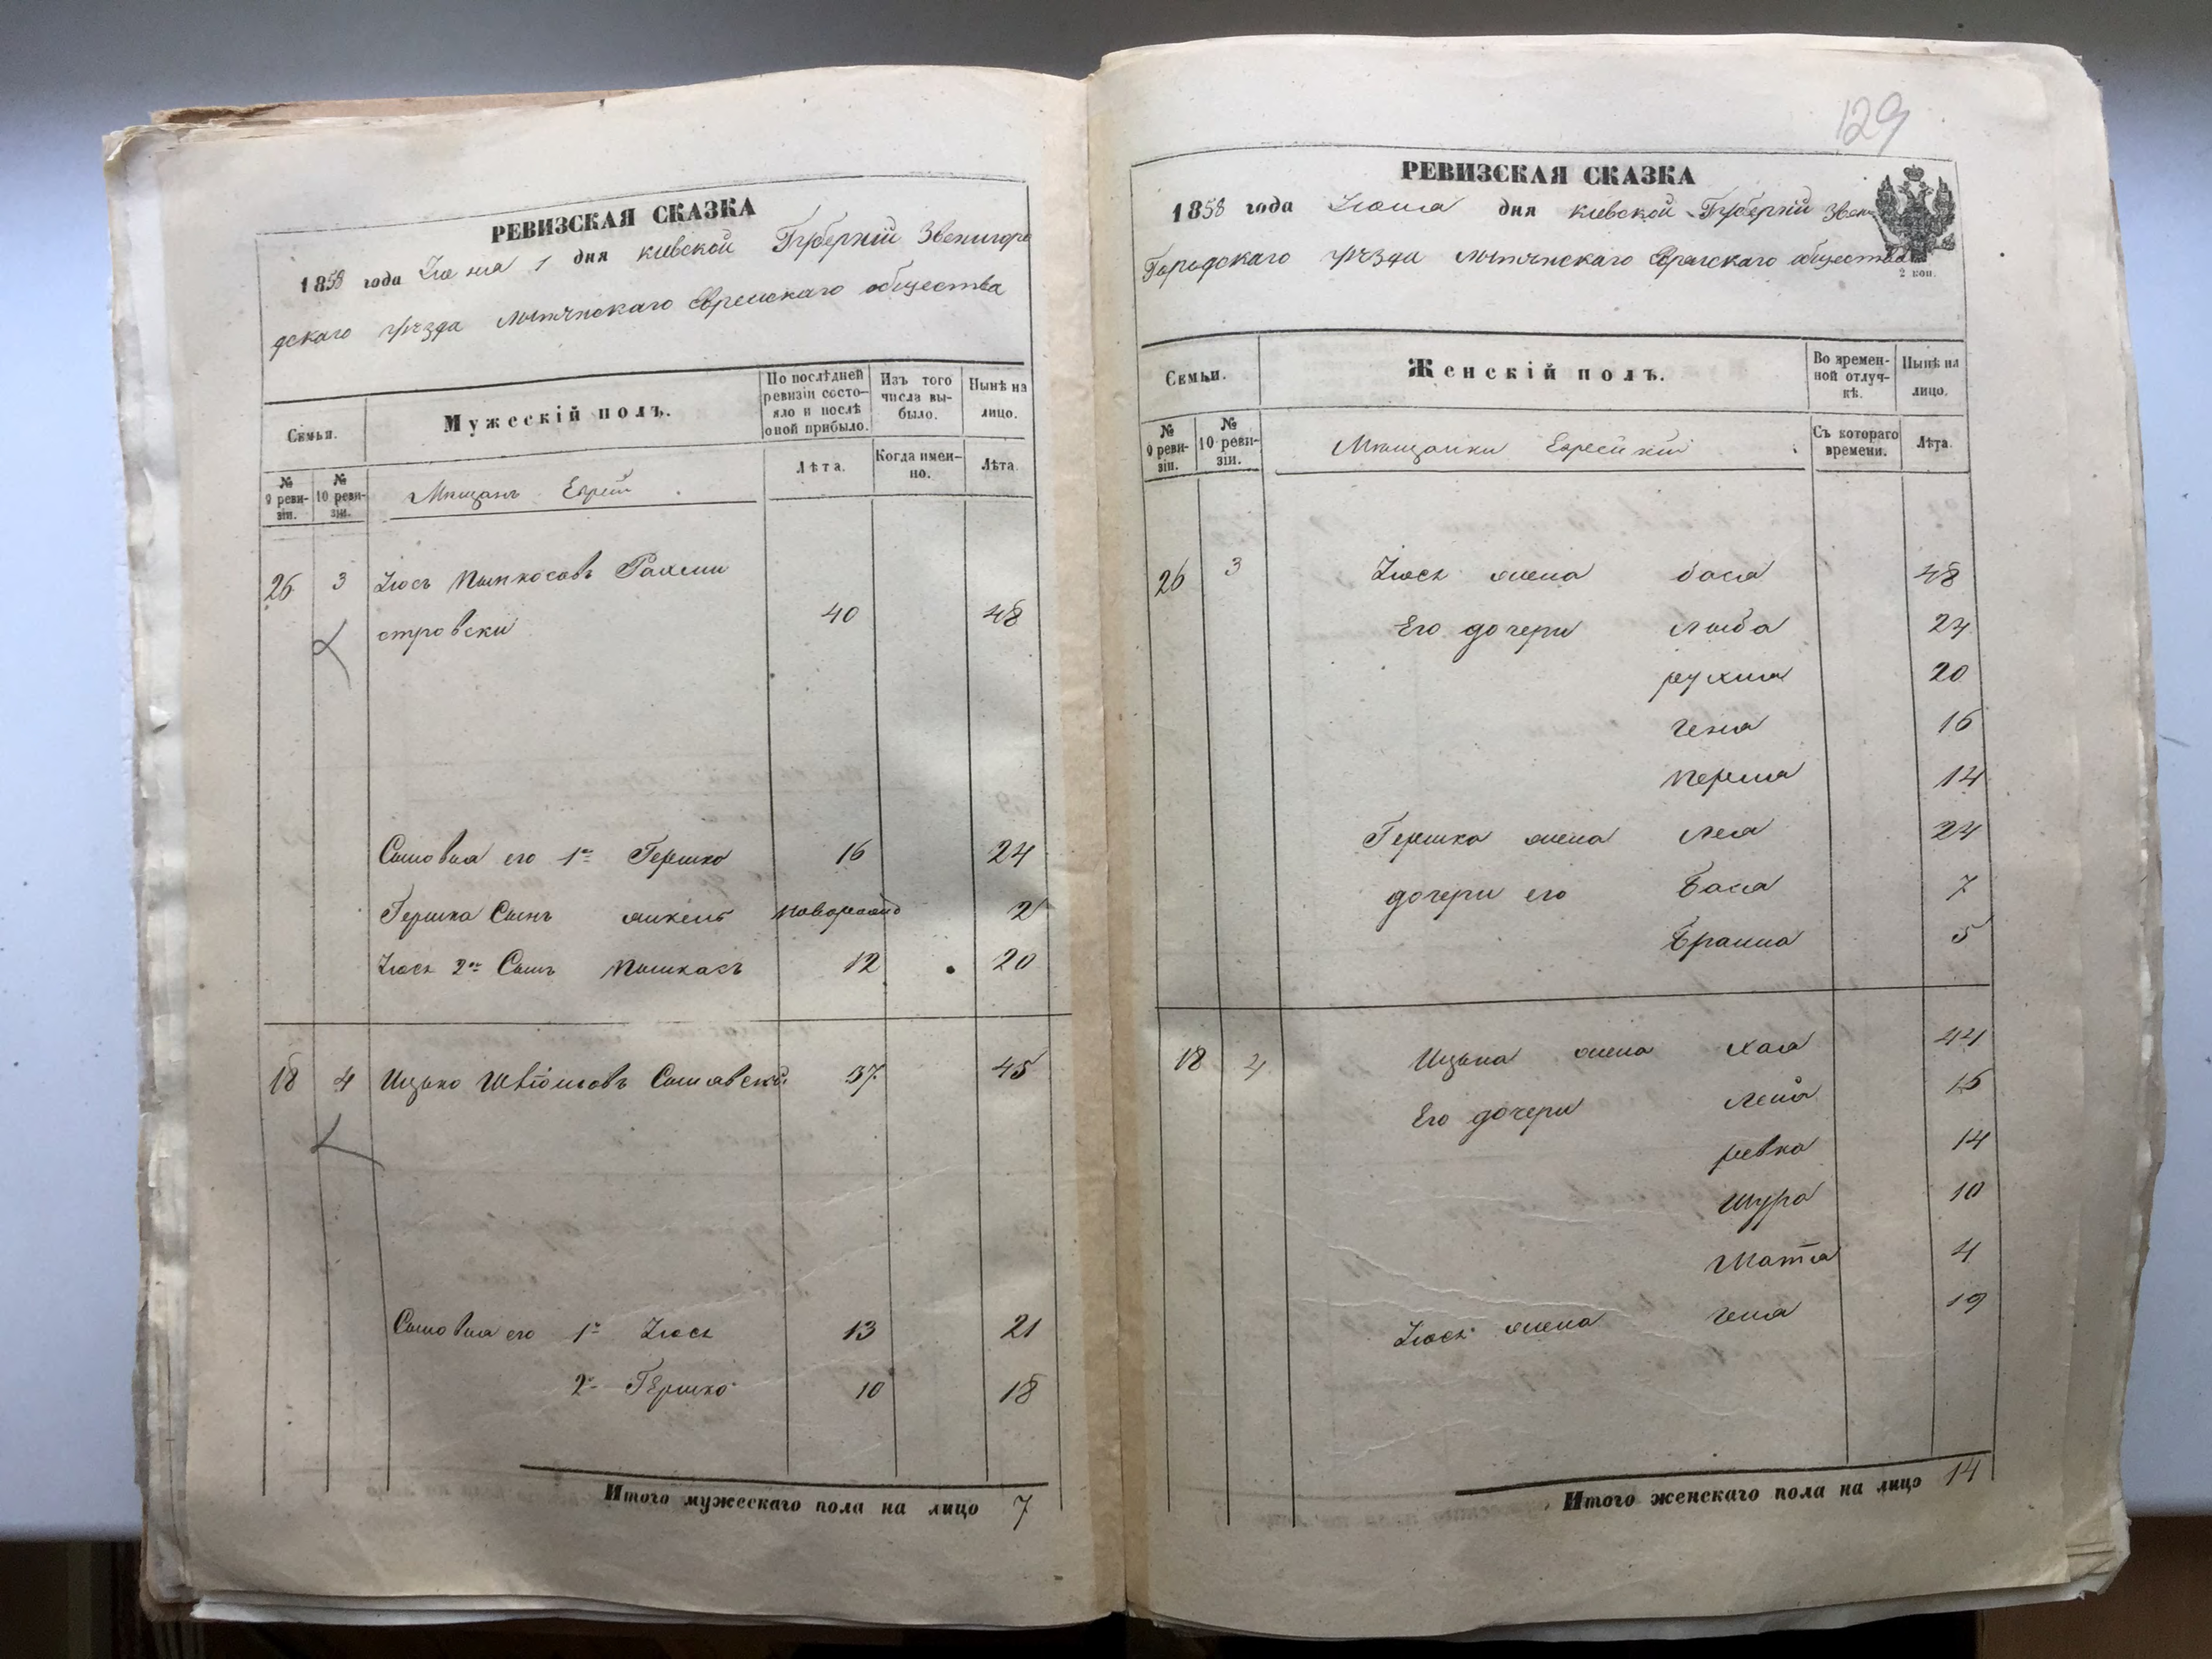 РЕВИЗСКАЯ СКАЗКА
1858 года Июня 1 дня Киевской Губерніи Звенигоро
дскаго уѣзда Лысянскаго Еврейскаго общества
Семьи.
Мужескій полъ.
По послѣдней ревизіи состо-
яло и послѣ
оной прибыло.
Изъ того
числа вы-
было.
Нынѣ на
лицо.
№
9 реви-
зіи.
№
10 реви-
зіи.
Мещанъ Еврей
Лѣта.
Когда имен-
но.
Лѣта.
26 3 Іось Пинкосовъ
островски 40 48
Сыновья его 1й Гершко 16 24
Гершка Сынъ Янкель новорожд 2
Іося 2й Сынъ Пинкасъ 12 20
18 4 Ицько 37 45
Сыновья его 1й Іось 13 21
2й Гершко 10 18
Итого мужескаго пола на лицо 7
129
РЕВИЗСКАЯ СКАЗКА
1858 года Июня дня Киевской Губерніи Звени
Городскаго уѣзда Лысянскаго Еврейскаго общества
2 коп.
Семьи.
Женскій полъ.
Во времен-
ной отлуч-
кѣ.
Нынѣ на
лицо.
№
9 реви-
зіи.
№
10 реви-
зіи.
Мещанки Еврейкій
Съ котораго
времени.
Лѣта.
26 3 Іося жена бася 48
Его дочери Люба 24
рухля 20
геня 16
перля 14
Гершка жена Лея 24
дочери его Бася 7
Браина 5
18 4 Ицька жена хая 44
Его дочери 16
ревка 14
шура 10
4
Іося жена геня 19
Итого женскаго пола на лицо 14